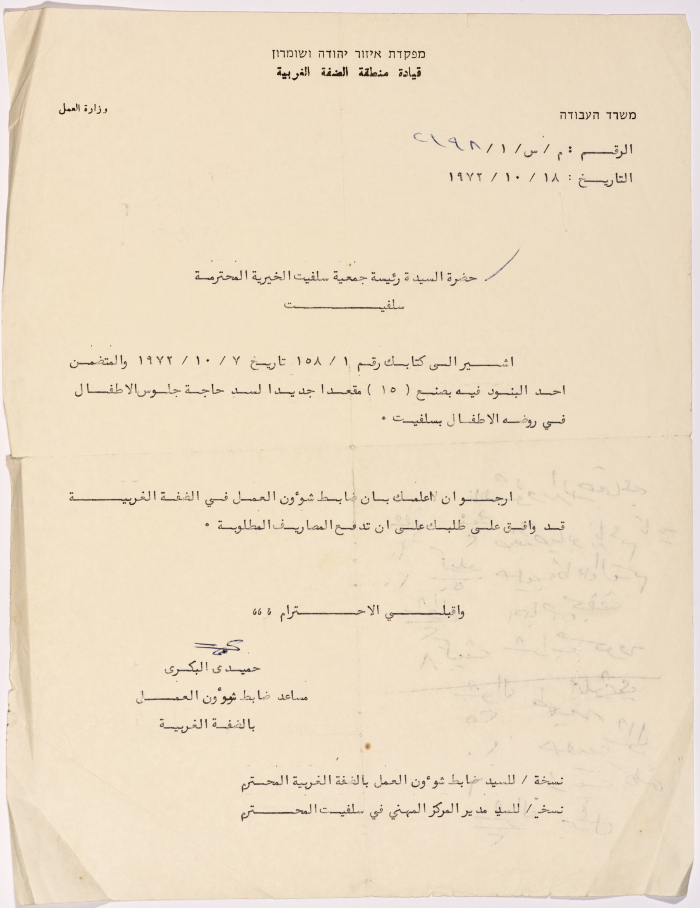 מפקדת איזור יהודה ושומרון
قيادة منطقة الضفة الغربية
משרד העבודה
وزارة العمل
الرقـــم : م / س / ١ / ٢٦٩٨
التاريـخ : ١٨ / ١٠ / ١٩٧٢
حضرة السيدة رئيسة جمعية سلفيت الخيرية المحترمة
سلفيـــــــــت
اشـير الـى كتابـك رقم ١ / ١٥٨ تاريخ ٧ / ١٠ / ١٩٧٢ والمتضمن
احد البنود فيه بصنع ( ١٥ ) مقعدا جديدا لسد حاجة جلوس الاطفـــال
فـي روضه الاطفـال بسلفيـت •
ارجــو ان اعلمـك بـان ضابـط شوءون العمـل فـي الضفة الغربيـــة
قـد وافق علـى طلبـك على ان تدفـع المصاريـف المطلوبـة •
واقبلـــي الاحـــترام ،،،
حميـدى البكـرى
مساعد ضابط شوءون العمــــل
بالضفة الغربيـــة
نسخة / للسيد ضابط شوءون العمل بالضفة الغربية المحترم
نسخة / للسيد مدير المركز المهني في سلفيت المحـــــترم